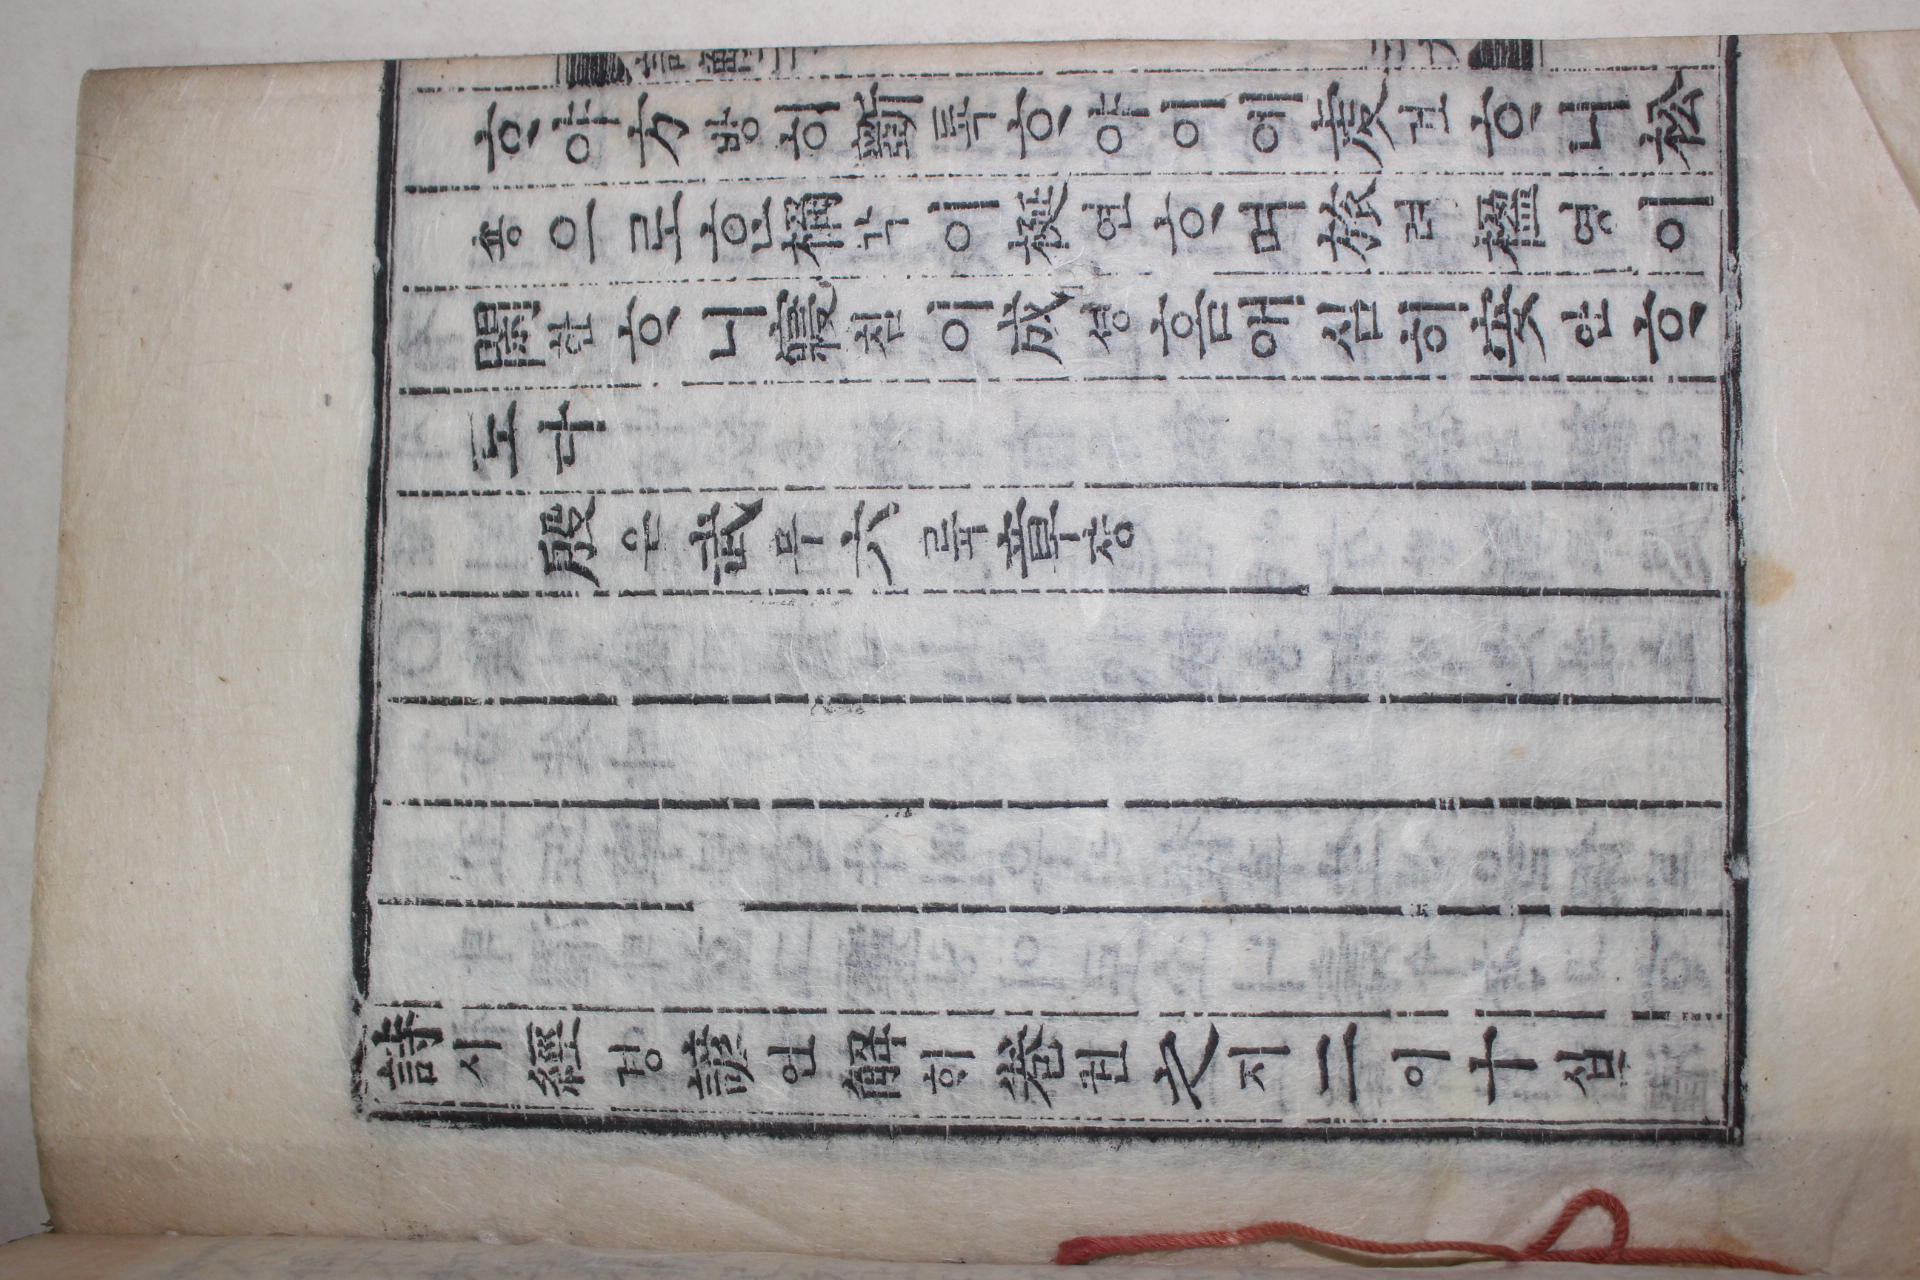 ᄒᆞ야方방히斲탁ᄒᆞ야이예虔건ᄒᆞ니松
숑으로ᄒᆞᆫ桷각이梴연ᄒᆞ며旅려楹영이
閑한ᄒᆞ니寢침이成셩홈애심히安안ᄒᆞ
도다
殷은武무六륙章장
詩시經경諺언解ᄒᆡ卷권之지二이十십